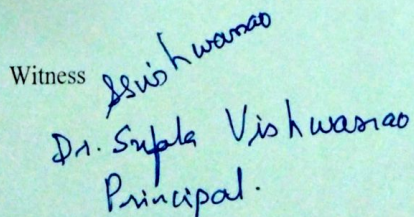 Witness SVishwasrao
Dr. Supla Vishwasrao
Principal.